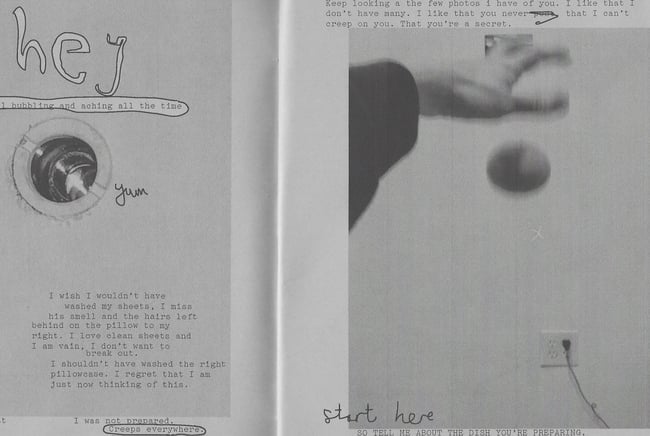 hey
l bubbling and aching all the time
yum
I wish I wouldn't have
washed my sheets, I miss
his smell and the hairs left
behind on the pillow to my
right. I love clean sheets and
I am vain, I don't want to
break out.
I shouldn't have washed the right
pillowcase. I regret that I am
just now thinking of this.
t
I was not prepared.
Creeps everywhere.
Keep looking a the few photos i have of you. I like that I
don't have many. I like that you never that I can't
creep on you. That you're a secret.
start here
SO TELL ME ABOUT THE DISH YOU'RE PREPARING.